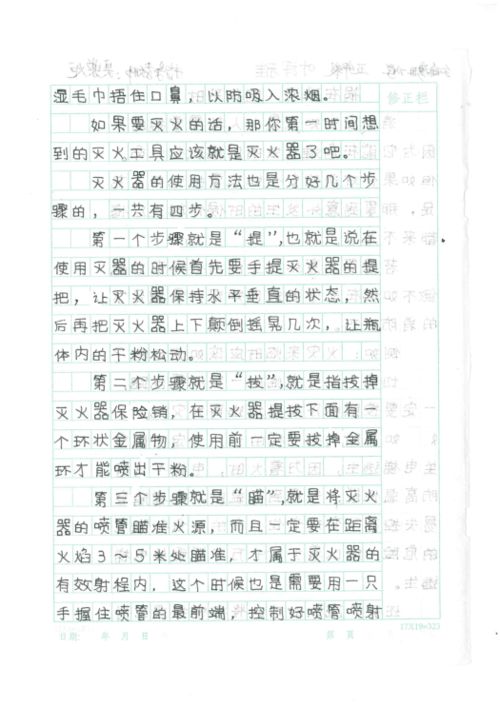 湿毛巾捂住口鼻，以防吸入浓烟。
修正栏
如果要灭火的话，那你第一时间想
到的灭火工具应该就是灭火器了吧。
灭火器的使用方法也是分好几个步
骤的，一共有四步。
第一个步骤就是“提”，也就是说在
使用灭器的时候首先要手提灭火器的提
把，让灭火器保持水平垂直的状态，然
后再把灭火器上下颠倒摇晃几次，让瓶
体内的干粉松动。
第二个步骤就是“拔”，就是指拔掉
灭火器保险销，在灭火器提拔下面有一
个环状金属物，使用前一定要拔掉金属
环才能喷出干粉。
第三个步骤就是“瞄”，就是将灭火
器的喷管瞄准火源，而且一定要在距离
火焰3—5米处瞄准，才属于灭火器的
有效射程内，这个时候也是需要用一只
手握住喷管的最前端，控制好喷管喷射
日期： 年 月 日 第 页 17X19=323